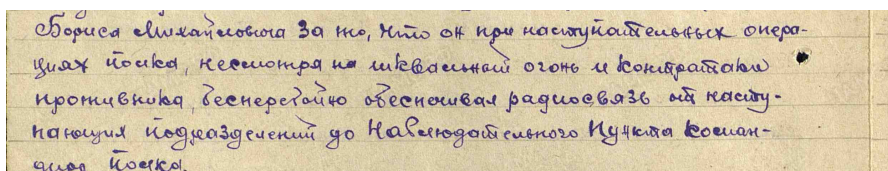 Бориса Михайловича за то, что он при наступательных опера-
циях полка, несмотря на шквальный огонь и контратаки
противника, бесперебойно обеспечивал радиосвязь от насту-
пающих подразделений до Наблюдательного Пункта коман-
дира полка.